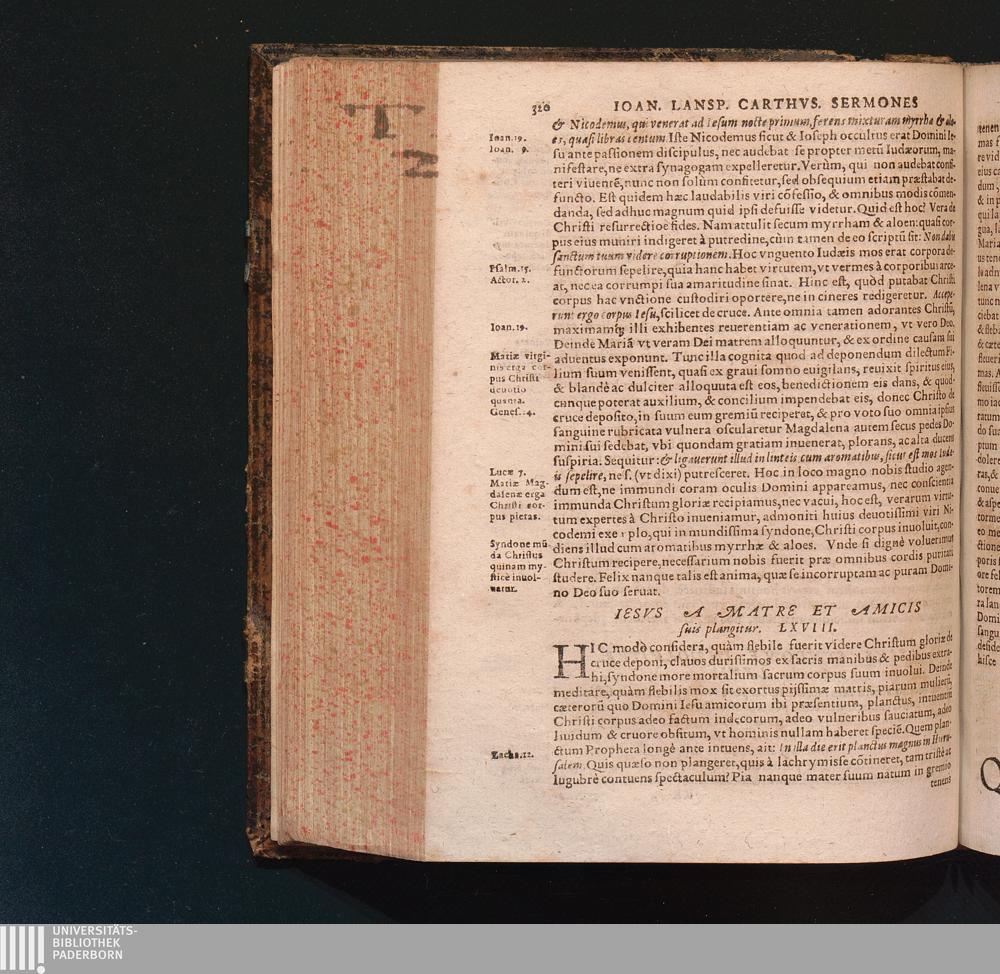 T
N
320 IOAN. LANSP. CARTHVS. SERMONES
& Nicodemus, qui venerat ad Iesum nocte primum, ferens mixturam myrrhæ & alo-
es, quasi libras centum. Iste Nicodemus sicut & Ioseph occultus erat Domini Ie-
su ante passionem discipulus, nec audebat se propter metũ Iudæorum, ma-
nifestare, ne extra synagogam expelleretur. Verùm, qui non audebat confi-
teri viuentẽ, nunc non solùm confitetur, sed obsequium etiam præstabat de-
functo. Est quidem hæc laudabilis viri cõfessio, & omnibus modis cõmen-
danda, sed adhuc magnum quid ipsi defuisse videtur. Quid est hoc? Vera de
Christi resurrectiõe fides. Nam attulit secum myrrham & aloen: quasi cor-
pus eius muniri indigeret à putredine, cùm tamen de eo scriptũ sit: Non dabis
sanctum tuum videre corruptionem. Hoc vnguento Iudæis mos erat corpora de-
functorum sepelire, quia hanc habet virtutem, vt vermes à corporibus arce-
at, nec ea corrumpi sua amaritudine sinat. Hinc est, quòd putabat Christi
corpus hac vnctione custodiri oportere, ne in cineres redigeretur. Accepe-
runt ergo corpus Iesu, scilicet de cruce. Ante omnia tamen adorantes Christũ,
maximamq; illi exhibentes reuerentiam ac venerationem, vt vero Deo.
Deinde Mariã vt veram Dei matrem alloquuntur, & ex ordine causam sui
aduentus exponunt. Tunc illa cognita quod ad deponendum dilectum Fi-
lium suum venissent, quasi ex graui somno euigilans, reuixit spiritus eius,
& blandè ac dulciter alloquuta est eos, benedictionem eis dans, & quod-
cunque poterat auxilium, & concilium impendebat eis, donec Christo de
cruce deposito, in suum eum gremiũ reciperet, & pro voto suo omnia ipsius
sanguine rubricata vulnera oscularetur Magdalena autem secus pedes Do-
mini sui sedebat, vbi quondam gratiam inuenerat, plorans, ac alta ducens
suspiria. Sequitur: & ligauerunt illud in linteis cum aromatibus, sicut est mos Iudæ-
is sepelire, ne s. (vt dixi) putresceret. Hoc in loco magno nobis studio agen-
dum est, ne immundi coram oculis Domini appareamus, nec conscientia
immunda Christum gloriæ recipiamus, nec vacui, hoc est, verarum virtu-
tum expertes à Christo inueniamur, admoniti huius deuotissimi viri Ni-
codemi exemplo, qui in mundissima syndone, Christi corpus inuoluit, con-
diens illud cum aromatibus myrrhæ & aloes. Vnde si dignè voluerimus
Christum recipere, necessarium nobis fuerit præ omnibus cordis puritati
studere. Felix nanque talis est anima, quæ se incorruptam ac puram Domi-
no Deo suo seruat.
IESVS A MATRE ET AMICIS
suis plangitur. LXVIII.
HIC modò considera, quàm flebile fuerit videre Christum gloriæ de
cruce deponi, clauos durissimos ex sacris manibus & pedibus extra-
hi, syndone more mortalium sacrum corpus suum inuolui. Deinde
meditare, quàm flebilis mox sit exortus pijssimæ matris, piarum mulierũ,
cæterorũ quo Domini Iesu amicorum ibi præsentium, planctus, intuentiũ
Christi corpus adeo factum indecorum, adeo vulneribus sauciatum, adeo
liuidum & cruore obsitum, vt hominis nullam haberet speciẽ. Quem plan-
ctum Propheta longè ante intuens, ait: In illa die erit planctus magnus in Hieru-
salem. Quis quæso non plangeret, quis à lachrymis se cõtineret, tam tristè ac
lugubrè contuens spectaculum? Pia nanque mater suum natum in gremio
tenens
Ioan. 19.
Ioan. 9.
Psalm. 15.
Actor. 2.
Ioan. 19.
Mariæ virgi-
nis erga cor-
pus Christi
deuotio
quanta.
Lucæ 7.
Mariæ Mag-
dalenæ erga
Christi cor-
pus pietas.
Syndone mũ-
da Christus
quinam my-
sticè inuol-
uatur.
Zacha. 12.
UNIVERSITÄTS-
BIBLIOTHEK
PADERBORN